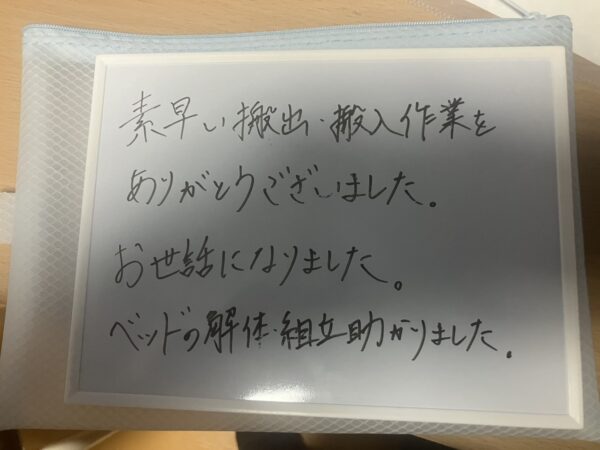 素早い搬出・搬入作業を
ありがとうございました。
お世話になりました。
ベッドの解体・組立助かりました。